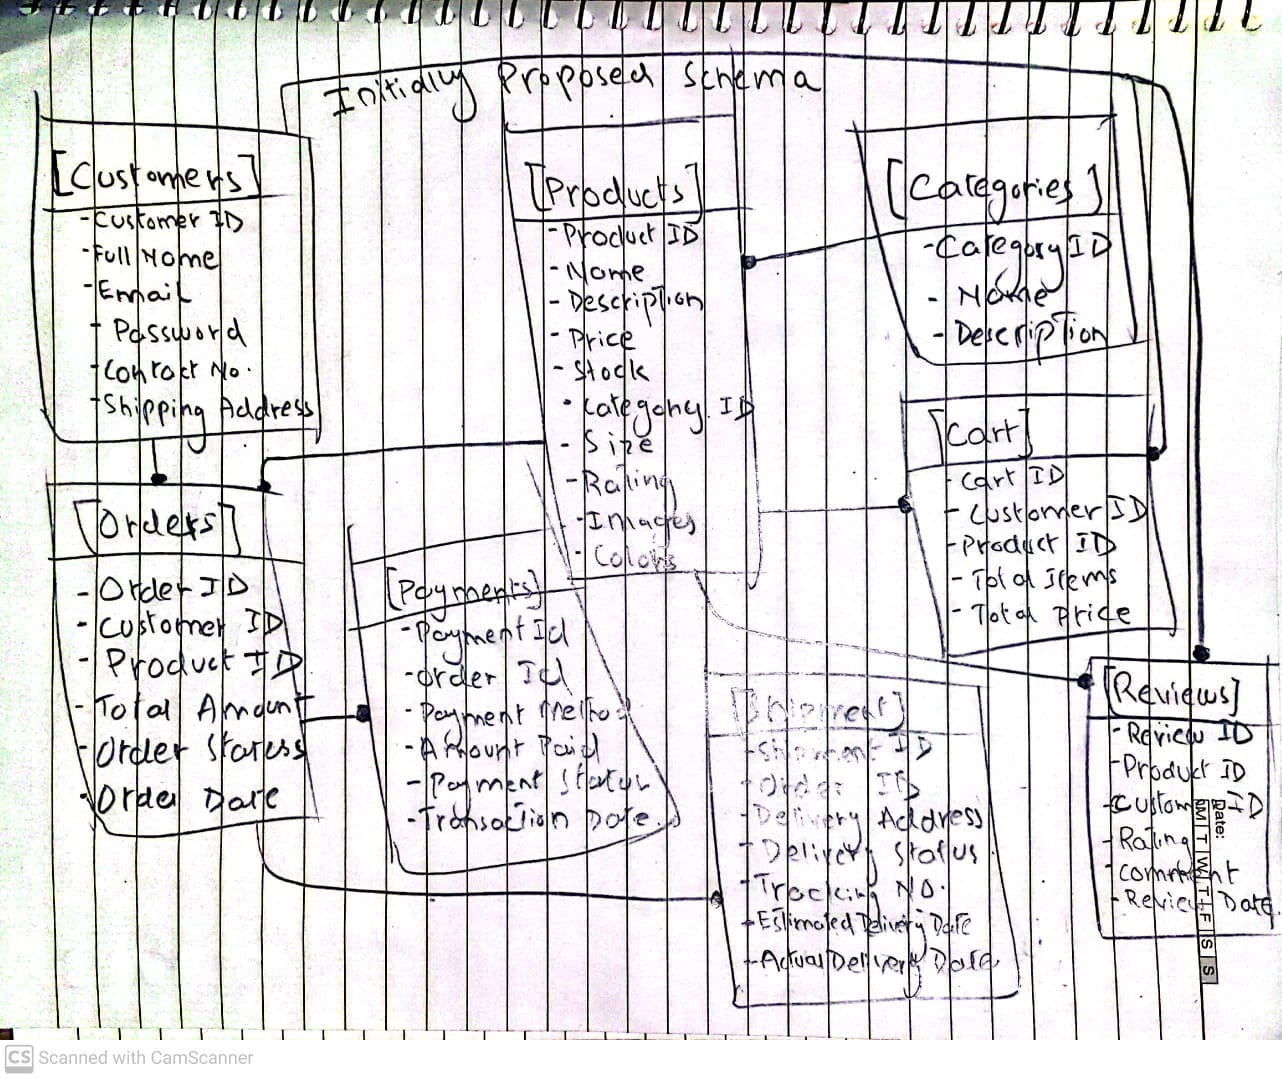 Initially Proposed Schema
[Customers]
-Customer ID
-Full Name
-Email
- Password
-Contact No.
-Shipping Address
[Products]
-Product ID
-Name
-Description
-Price
-Stock
-Category ID
-Size
-Rating
-Images
-Colors
[Categories]
-Category ID
- Name
-Description
[Cart]
-Cart ID
-Customer ID
-Product ID
-Total Items
-Total Price
[Orders]
-Order ID
-Customer ID
-Product ID
-Total Amount
-Order Statess
-Order Date
[Payments]
-Payment Id
-Order Id
-Payment Method
-Amount Paid
-Payment Status
-Transaction Date
[Shipment]
-Shipment ID
-Order ID
-Delivery Address
-Delivery Status
-Tracking No.
-Estimated Delivery Date
-Actual Delivery Date
[Reviews]
-Review ID
-Product ID
-Customer ID
-Rating
-comment
-Review Date
Date:
M T W T F S S
CS Scanned with CamScanner